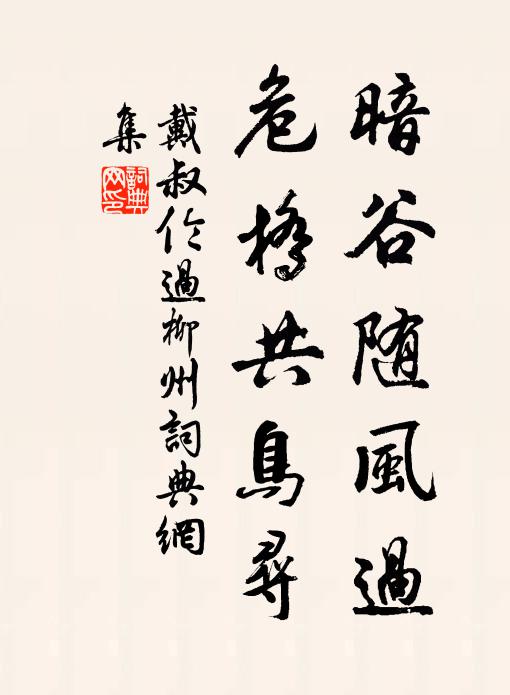 暗谷随風過
危橋共鳥尋
戴叔伦過柳州詞典網
集
詞典
网印